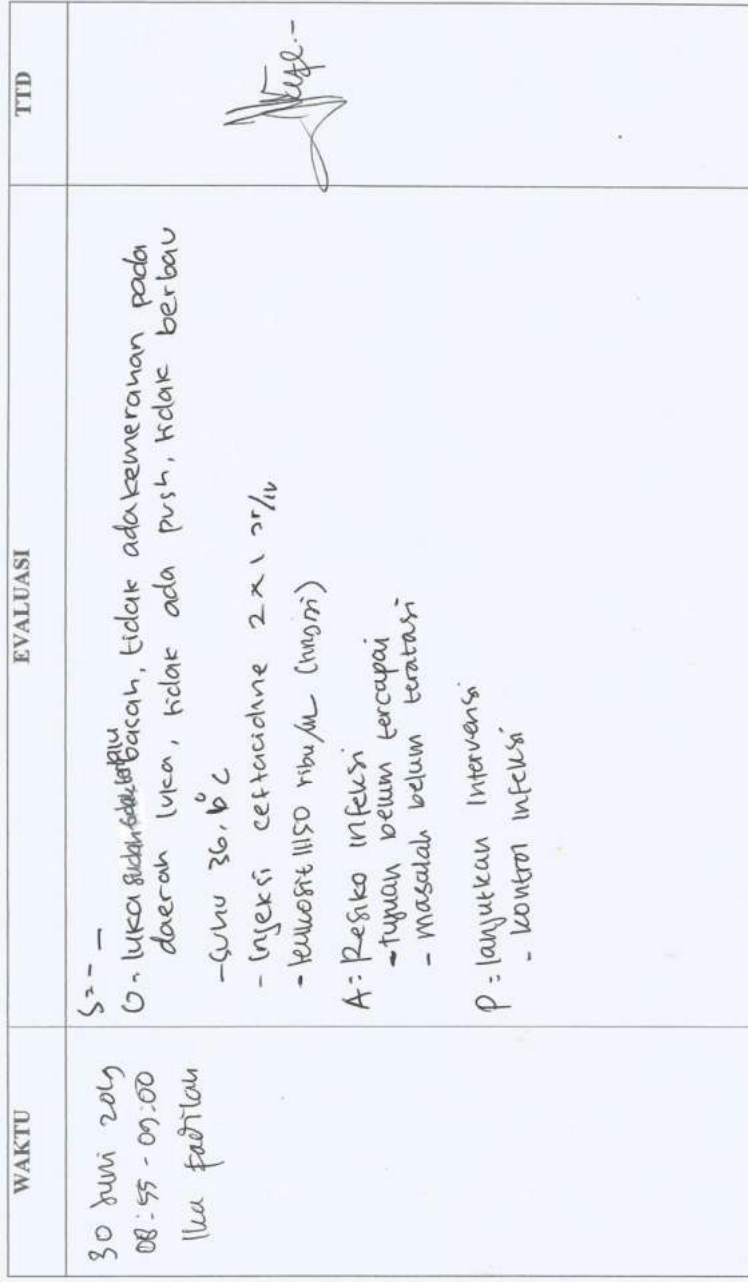 WAKTU
EVALUASI
TTD
30 Juni 2019
08:55 - 09:00
Ika Fadilah
S = - -
O = luka basah, tidak ada kemerahan pada
daerah luka, tidak ada push, tidak berbau
- Suhu 36,6°C
- Injeksi 2 x 1 gr/iv
- leukosit 11150 ribu/uL (tinggi)
A : Resiko infeksi
- tujuan belum tercapai
- masalah belum teratasi
P : lanjutkan Intervensi
- kontrol infeksi